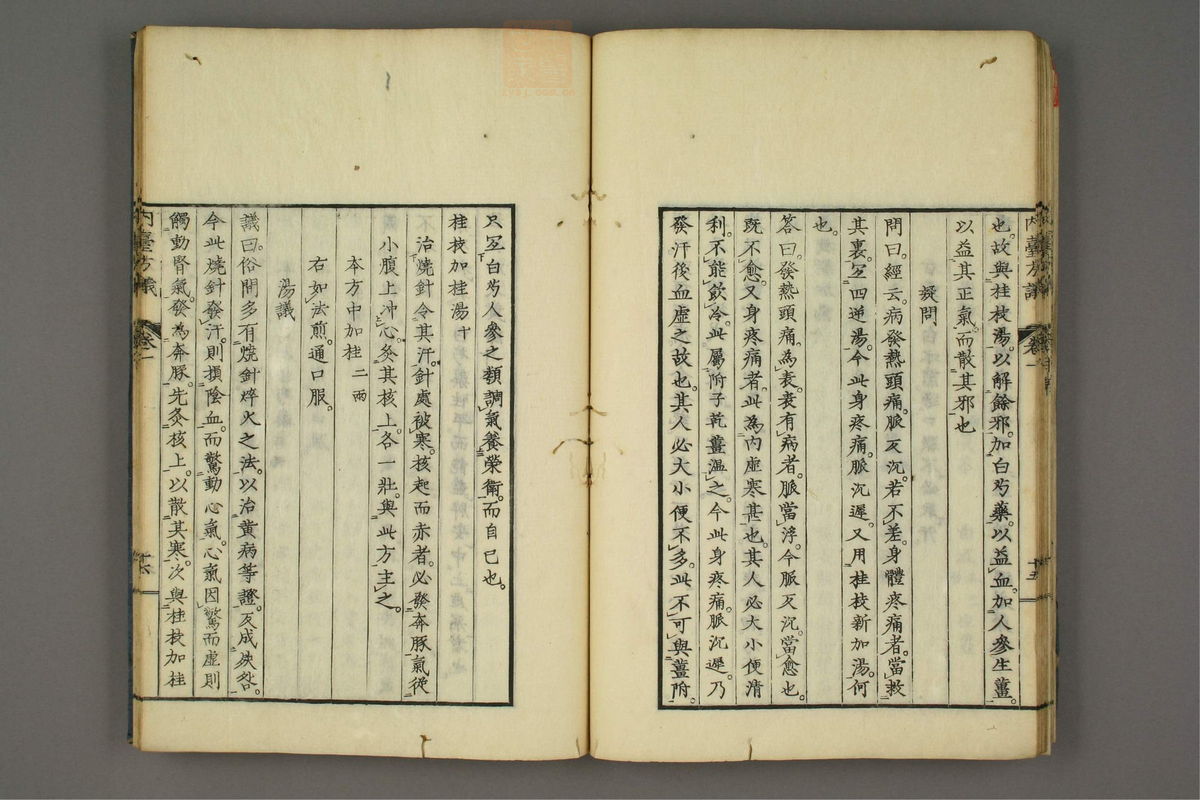 也。故與桂枝湯。以解餘邪。加白芍藥。以益血。加人參生薑。
以益其正氣。而散其邪也
疑問
問曰。經云。病發熱頭痛。脈反沉。若不差。身體疼痛者。當救
其裏。宜四逆湯。今此身疼痛。脈沉遲。又用桂枝新加湯。何
也。
答曰。發熱頭痛。為表。表有病者。脈當浮。今脈反沉。當愈也。
既不愈。又身疼痛者。此為內虛寒甚也。其人必大小便清
利。不能飲冷。此屬附子乾薑溫之。今此身疼痛。脈沉遲。乃
發汗後血虛之故也。其人必大小便不多。此不可與薑附。
只宜白芍人參之類。調氣養榮衛。而自已也。
桂枝加桂湯 十
治燒針令其汗。針處被寒。核起而赤者。必發奔豚。氣從
小腹上冲心。灸其核上。各一壯。與此方主之。
本方中加桂 二兩
右如法煎。通口服。
湯議
議曰。俗間多有燒針焠火之法。以治黄病等證。反成殃咎。
今此燒針發汗。則損陰血。而驚動心氣。心氣因驚而虛則
觸動腎氣。發為奔豚。先灸核上。以散其寒。次與桂枝加桂
內臺方議
卷一
十六
十五